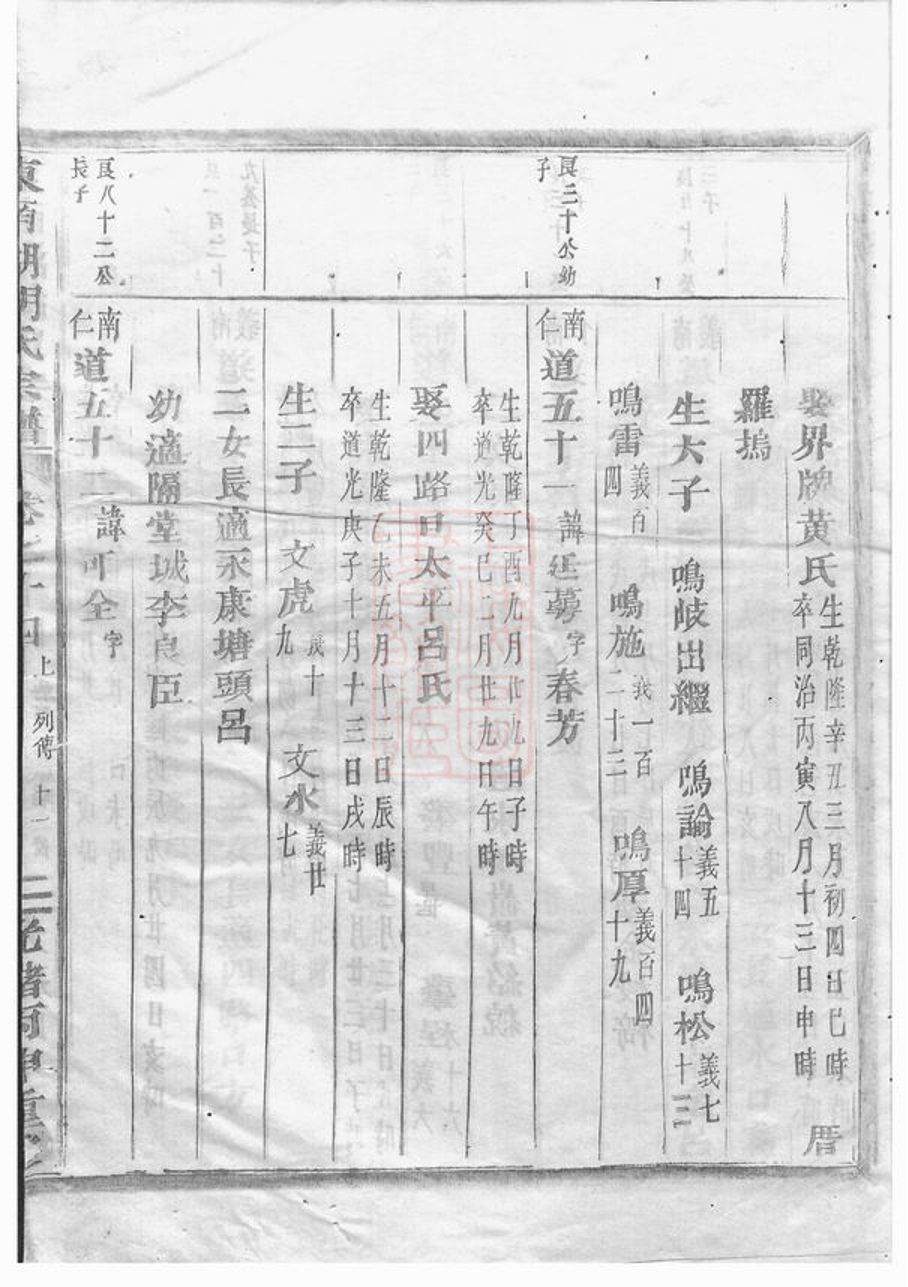 娶界牌黃氏 生乾隆辛丑三月初四日巳時 卒同治丙寅八月十三日申時 厝
羅塢
生六子 鳴岐出繼 鳴論義五十四 鳴松義七十三
鳴雷義百四 鳴施義一百二十三 鳴厚義百四十九
良三十公幼子
南仁道五十一 諱廷 字春芳
生乾隆丁酉九月廿九日子時
卒道光癸巳二月廿九日午時
娶四路口太平呂氏
生乾隆乙未五月十二日辰時
卒道光庚子十月十三日戌時
生二子 文虎義十九 文水義廿七
二女長適永康塘頭呂
幼適隔堂城李良臣
良八十二公長子
南仁道五十二 諱可全 字
東 胡氏宗譜 卷之十四上 列傳 十一 光緒丙申重